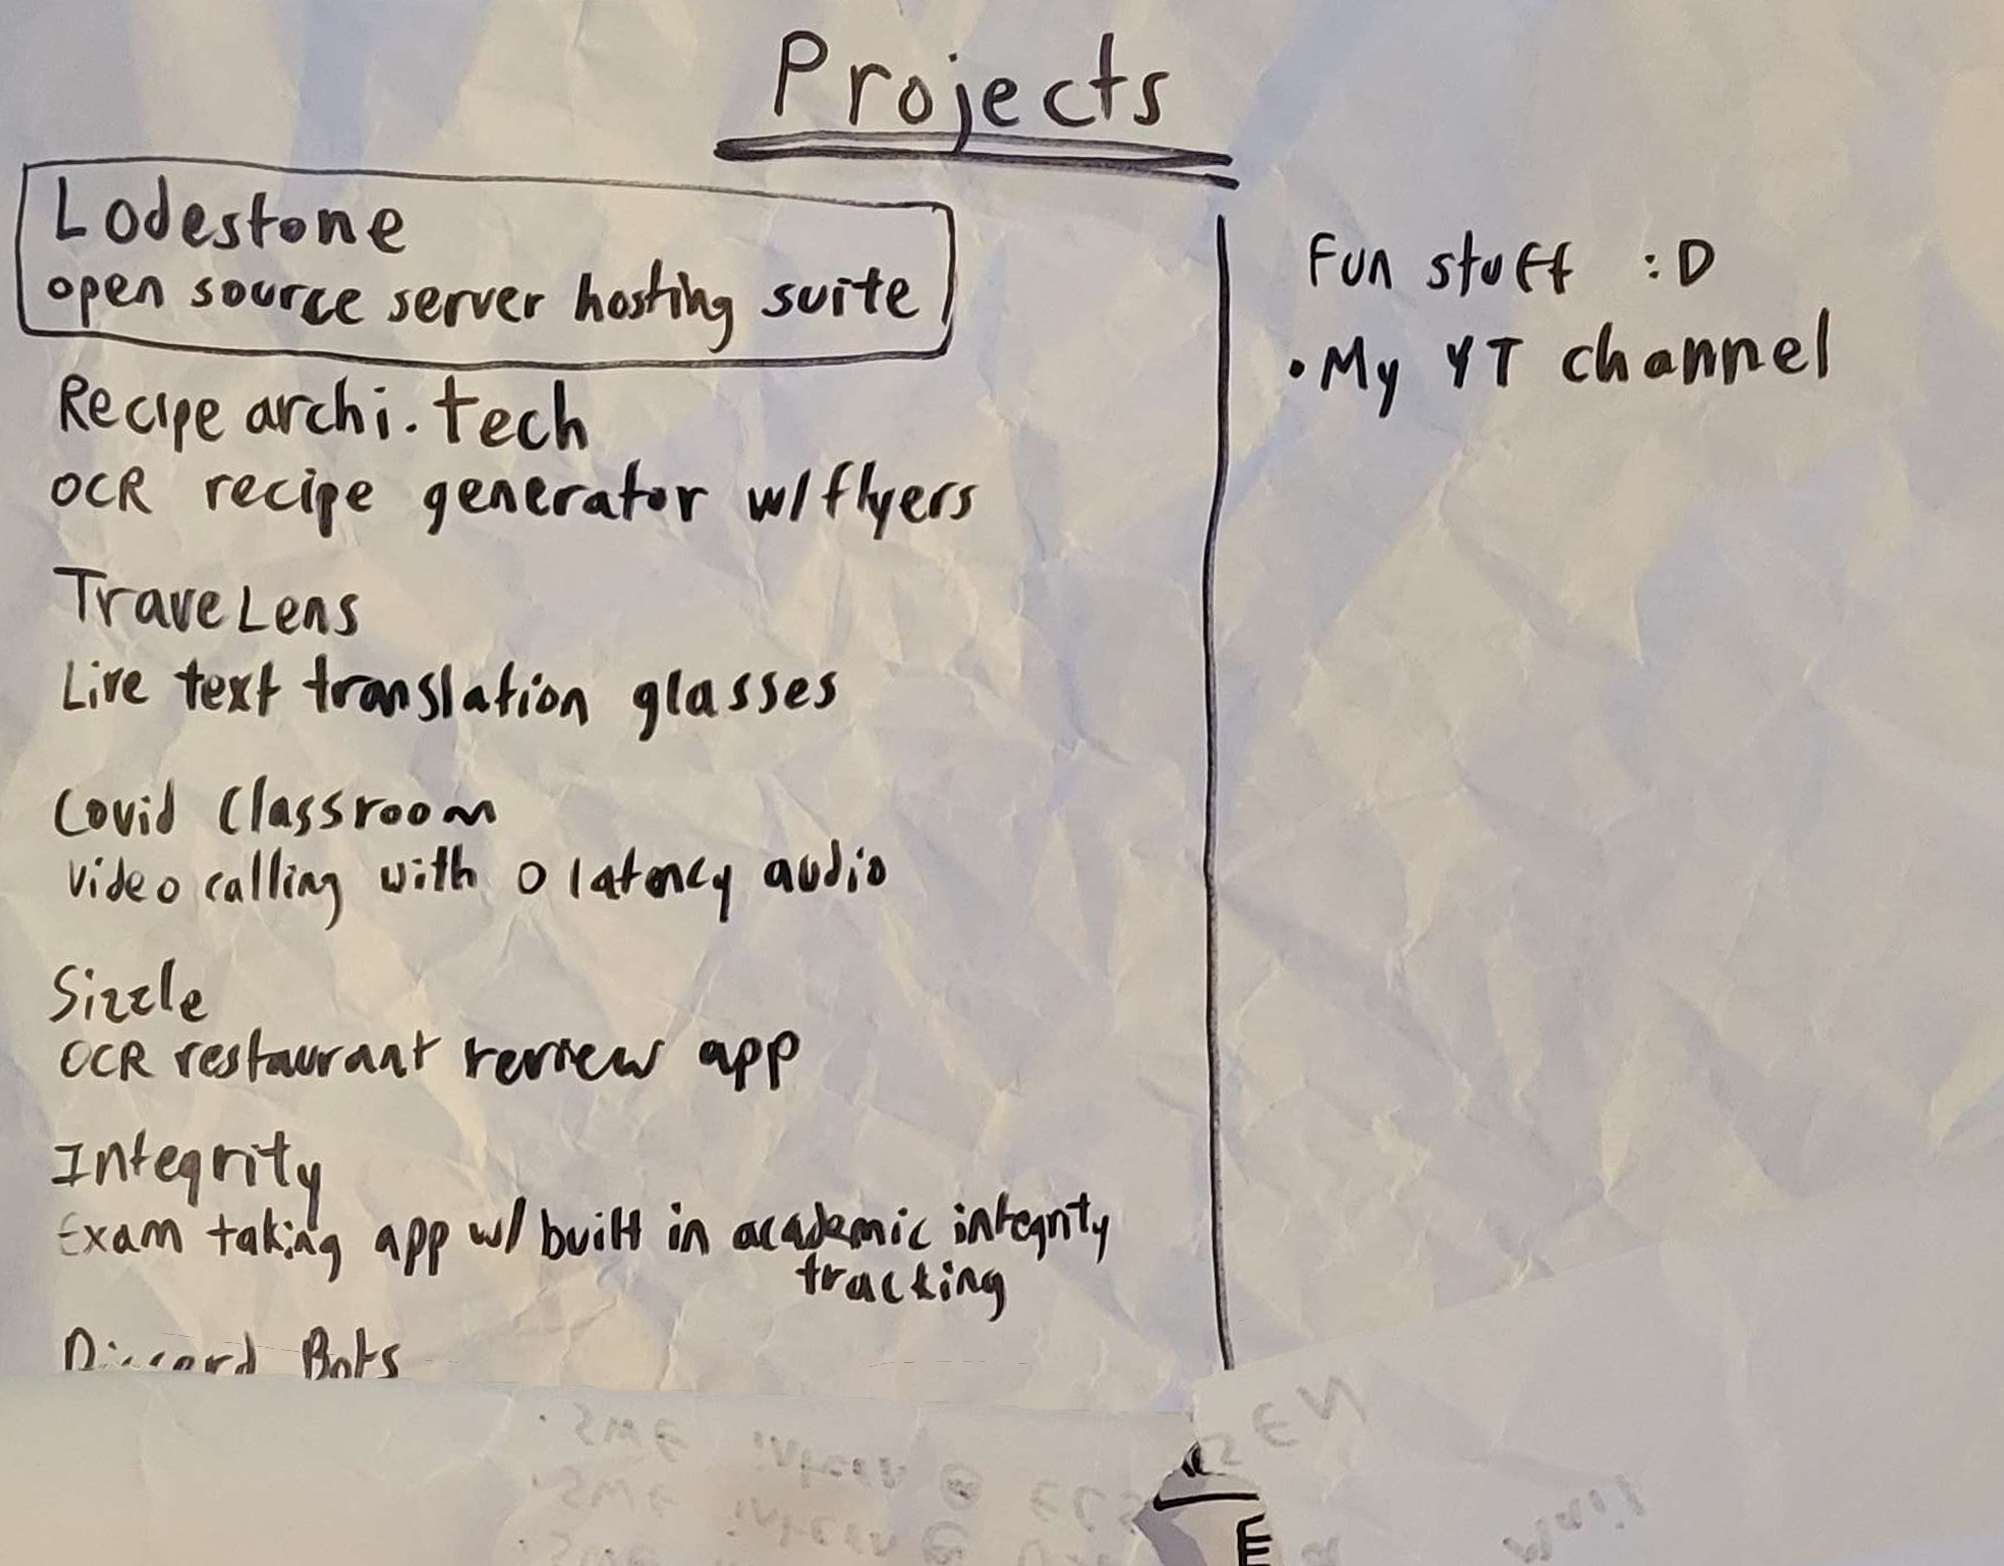 Projects
Lodestone
open source server hosting suite
Recipe archi.tech
OCR recipe generator w/ flyers
TraveLens
Live text translation glasses
Covid Classroom
Video calling with 0 latency audio
Sizzle
OCR restaurant review app
Integrity
Exam taking app w/ built in academic integrity
tracking
Discord Bots
Fun stuff :D
• My YT channel